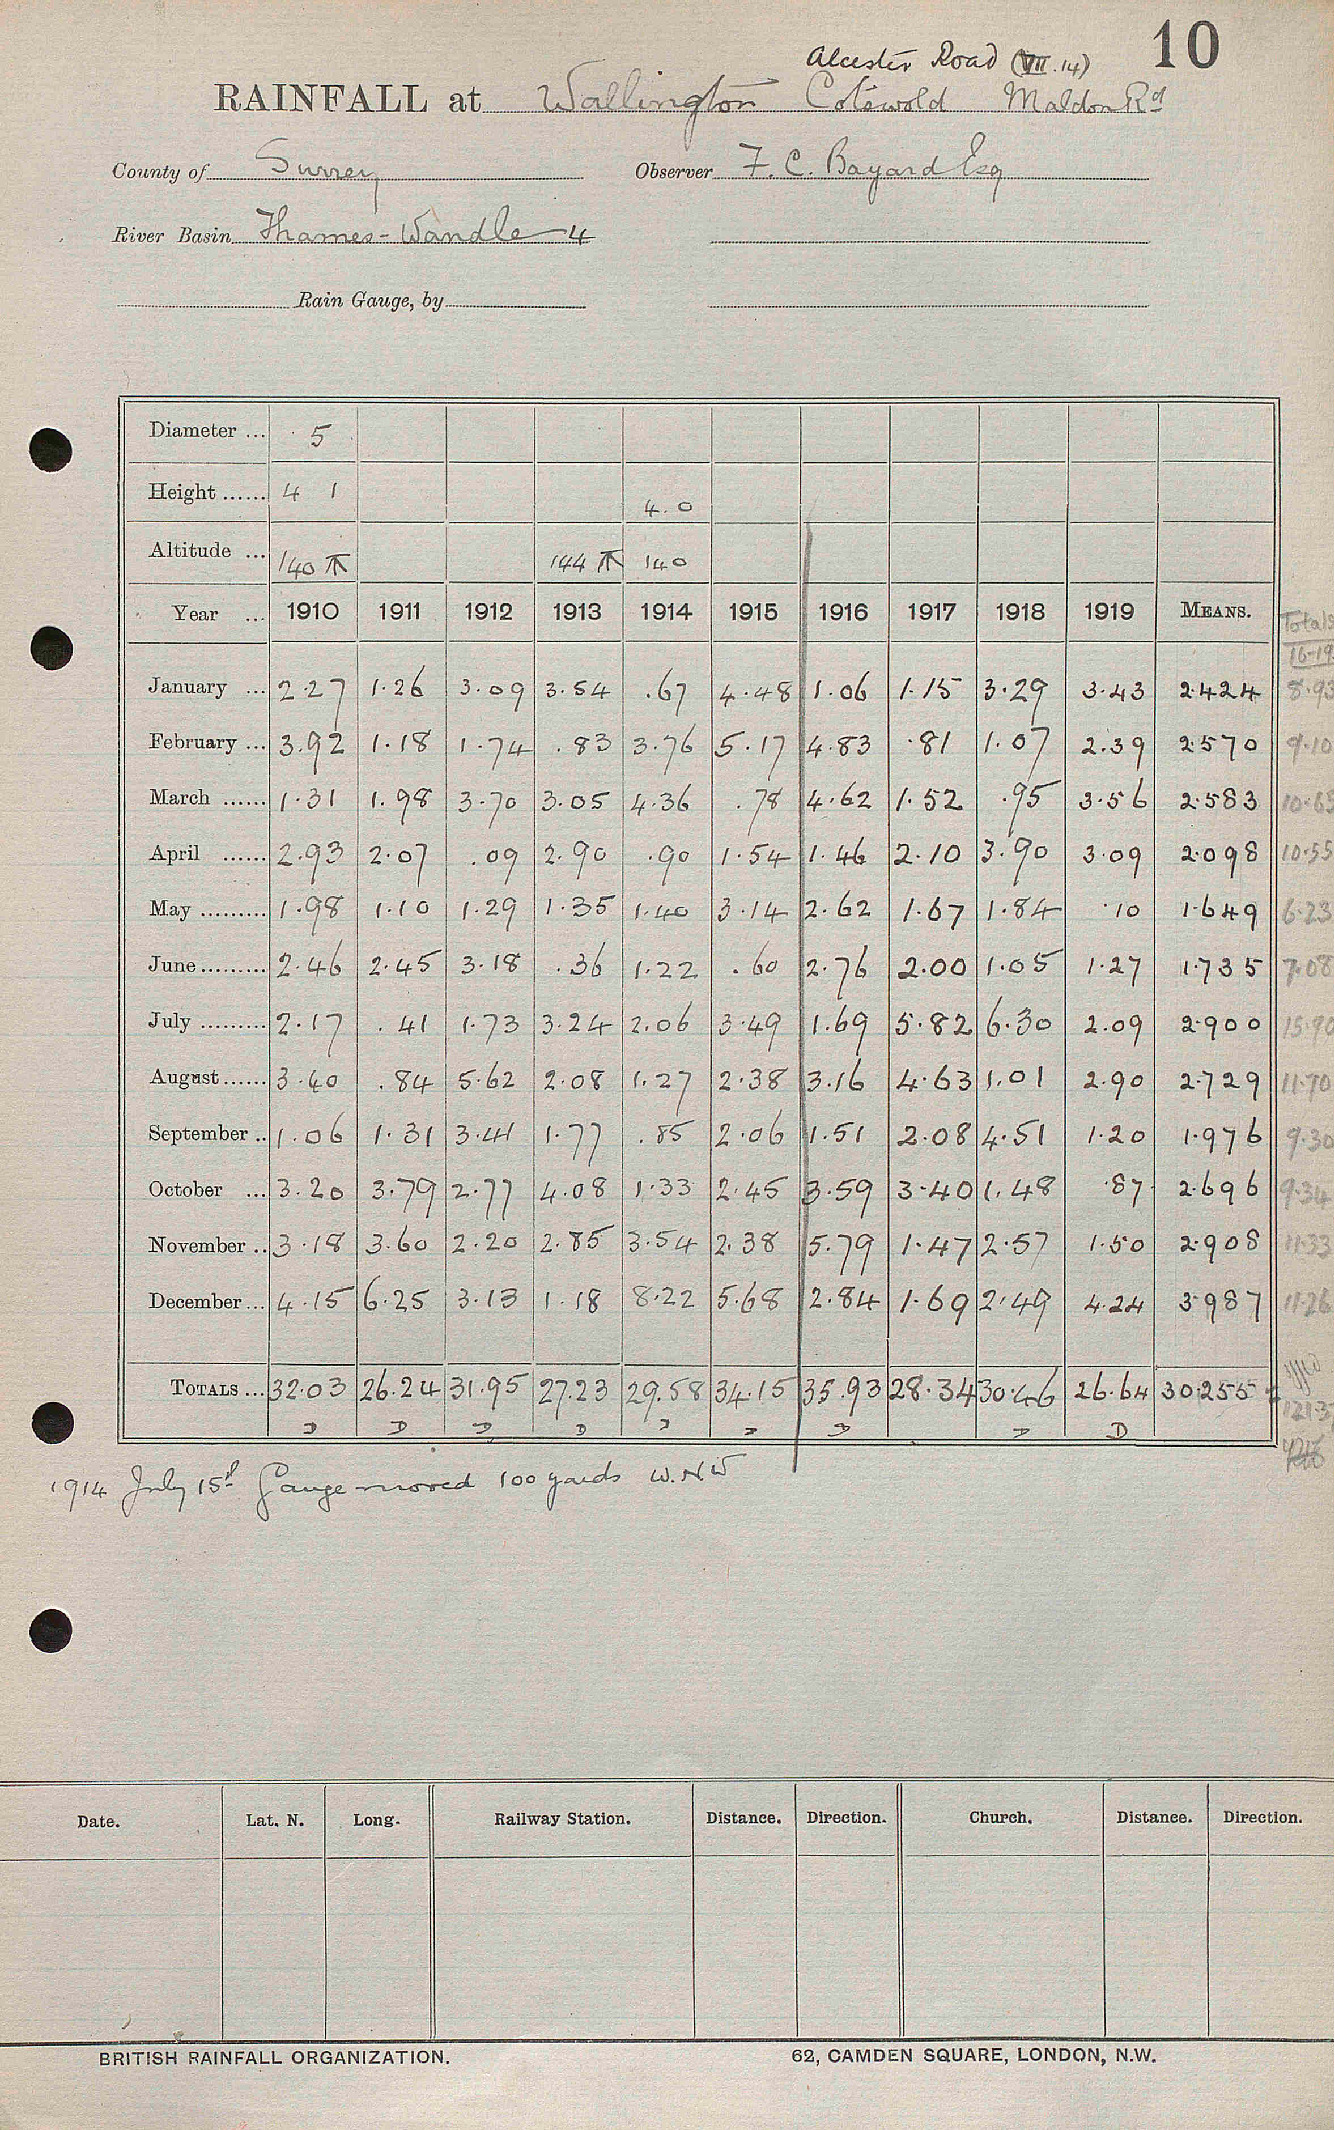 10
Alcester Road (VII.14)
RAINFALL at Wallington Cotswold Maldon Rd
County of Surrey Observer F. C. Bayard Esq
River Basin Thames - Wandle 4
Rain Gauge, by
Diameter ... 5
Height ...... 4 1 4.0
Altitude ... 140 144 140
Year ... 1910 1911 1912 1913 1914 1915 1916 1917 1918 1919 MEANS. Totals
16-19
January ... 2.27 1.26 3.09 3.54 .67 4.48 1.06 1.15 3.29 3.43 2.424 8.93
February ... 3.92 1.18 1.74 .83 3.76 5.17 4.83 .81 1.07 2.39 2.570 9.10
March ...... 1.31 1.98 3.70 3.05 4.36 .78 4.62 1.52 .95 3.56 2.583 10.65
April ...... 2.93 2.07 .09 2.90 .90 1.54 1.46 2.10 3.90 3.09 2.098 10.55
May ......... 1.98 1.10 1.29 1.35 1.40 3.14 2.62 1.67 1.84 .10 1.649 6.23
June ......... 2.46 2.45 3.18 .36 1.22 .60 2.76 2.00 1.05 1.27 1.735 7.08
July ......... 2.17 .41 1.73 3.24 2.06 3.49 1.69 5.82 6.30 2.09 2.900 15.90
August ...... 3.40 .84 5.62 2.08 1.27 2.38 3.16 4.63 1.01 2.90 2.729 11.70
September .. 1.06 1.31 3.41 1.77 .85 2.06 1.51 2.08 4.51 1.20 1.976 9.30
October ... 3.20 3.79 2.77 4.08 1.33 2.45 3.59 3.40 1.48 .87 2.696 9.34
November .. 3.18 3.60 2.20 2.85 3.54 2.38 5.79 1.47 2.57 1.50 2.908 11.33
December ... 4.15 6.25 3.13 1.18 8.22 5.68 2.84 1.69 2.49 4.24 3.987 11.26
TOTALS ... 32.03 26.24 31.95 27.23 29.58 34.15 35.93 28.34 30.46 26.64 30.255
D D D D D D D D D
1914 July 15th Gauge moved 100 yards W.NW
Date. Lat. N. Long. Railway Station. Distance. Direction. Church. Distance. Direction.
BRITISH RAINFALL ORGANIZATION. 62, CAMDEN SQUARE, LONDON, N.W.